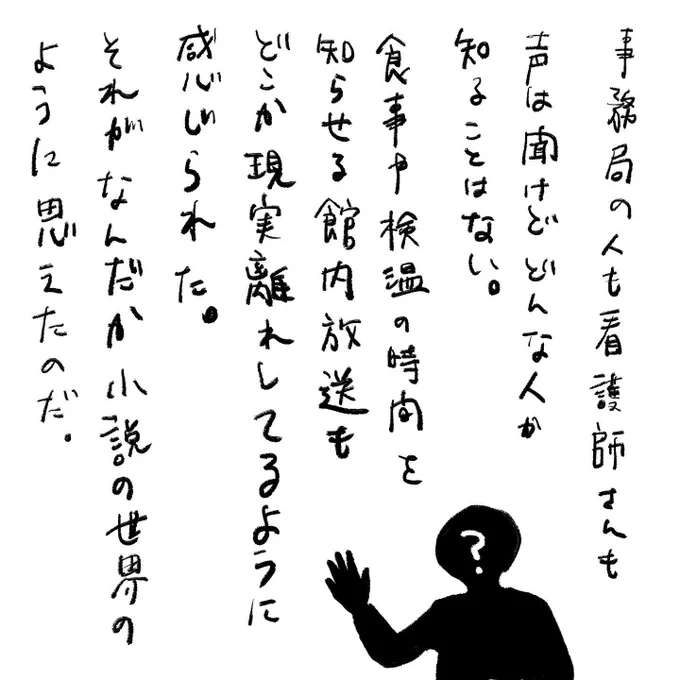 事務局の人も看護師さんも
声は聞けどどんな人か
知ることはない。
食事や検温の時間を
知らせる館内放送も
どこか現実離れしてるように
感じられた。
それがなんだか小説の世界の
ように思えたのだ。
?